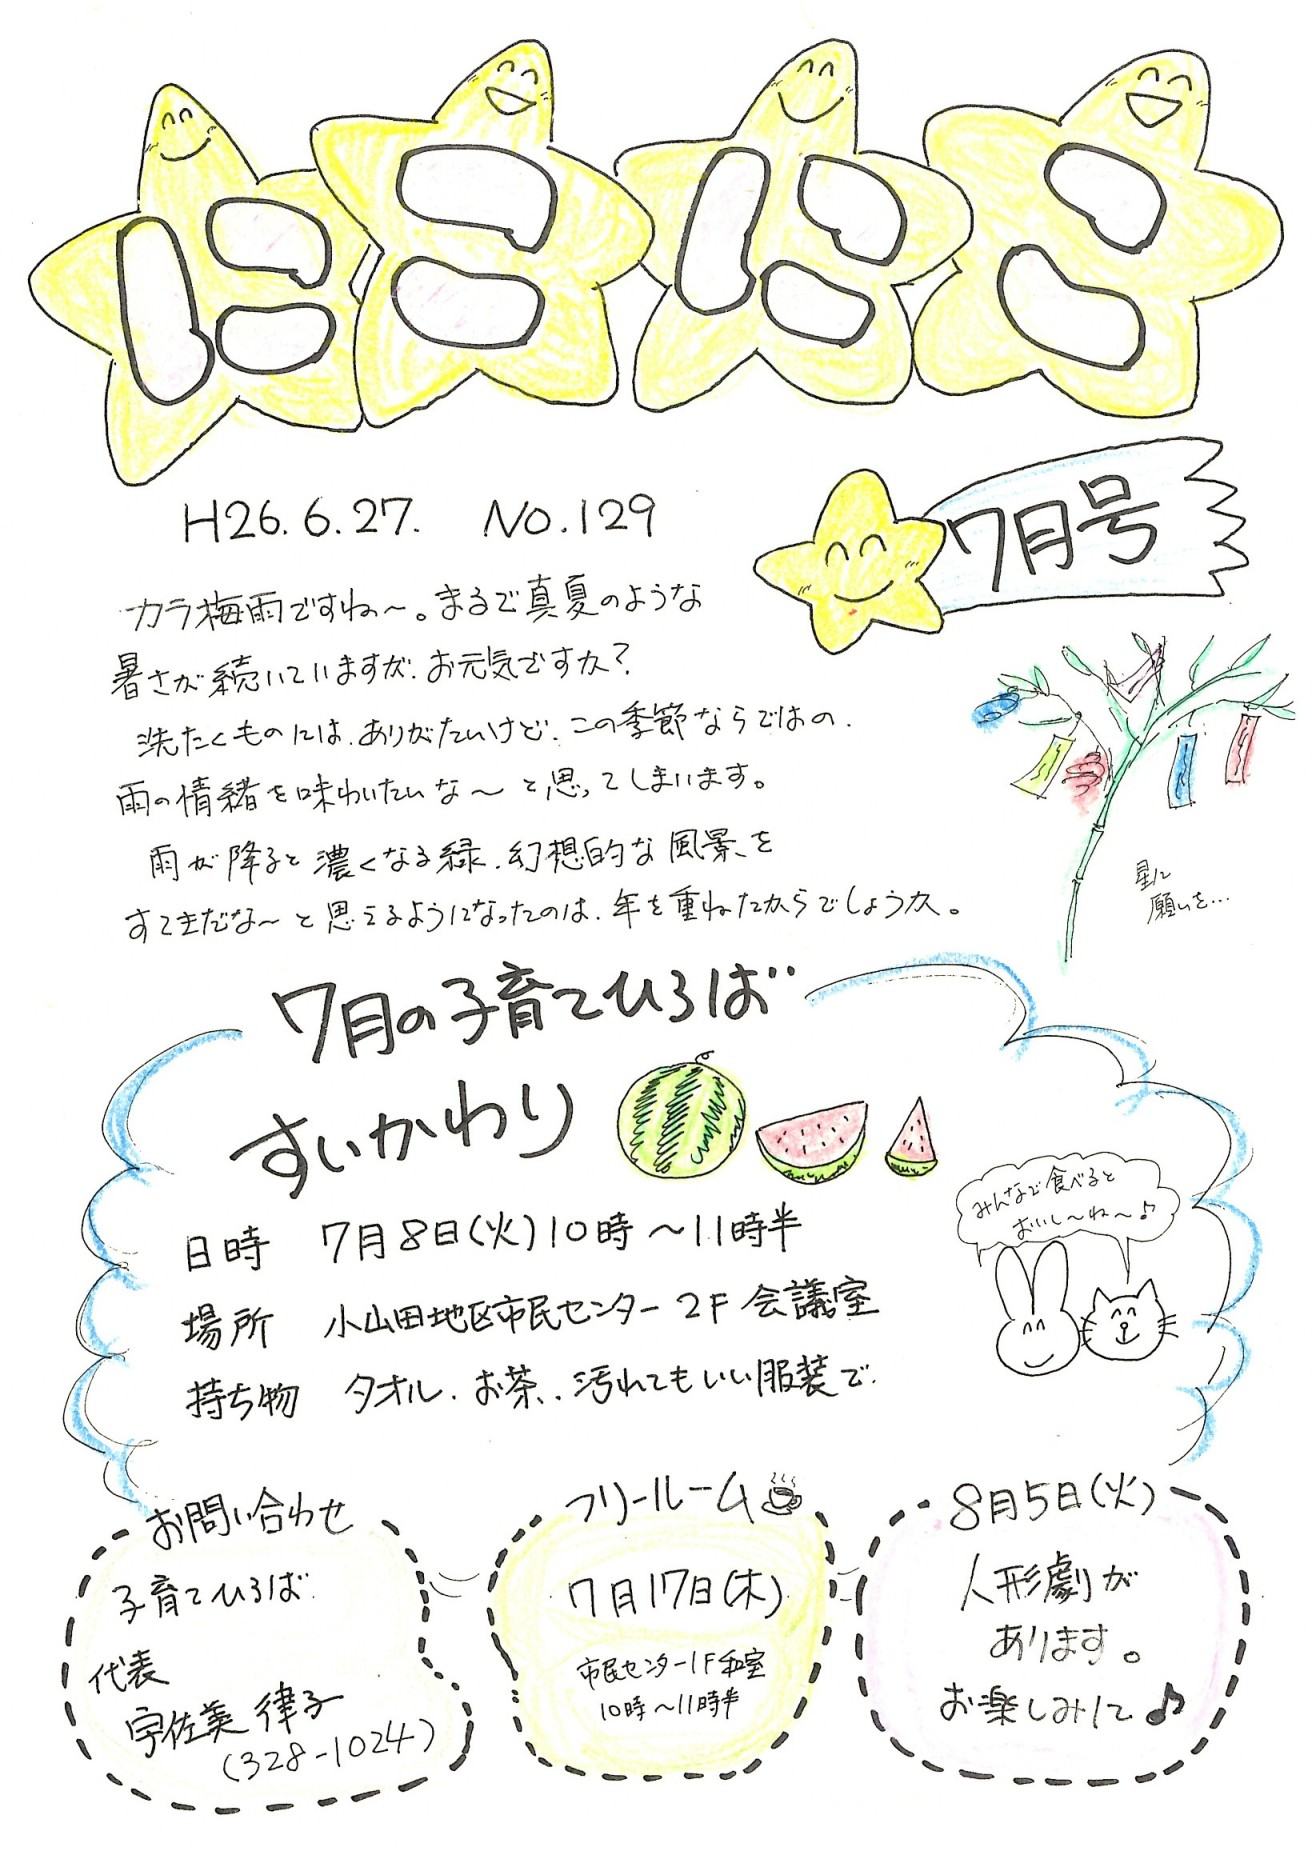 にこにこ
H26.6.27. No.129
7月号
カラ梅雨ですね～。まるで真夏のような
暑さが続いていますが、お元気ですか？
洗たくものには、ありがたいけど、この季節ならではの、
雨の情緒を味わいたいな～と思ってしまいます。
雨が降ると濃くなる緑、幻想的な風景、を
すてきだな～と思えるようになったのは、年を重ねたからでしょうか。
星に
願いを…
7月の子育てひろば
すいかわり
みんなで食べると
おいし～ね～♪
日時 7月8日(火)10時～11時半
場所 小山田地区市民センター2F会議室
持ち物 タオル、お茶、汚れてもいい服装で
お問い合わせ
子育てひろば
代表
宇佐美律子
(328-1024)
フリールーム
7月17日(木)
市民センター1F和室
10時～11時半
8月5日(火)
人形劇が
あります。
お楽しみに♪